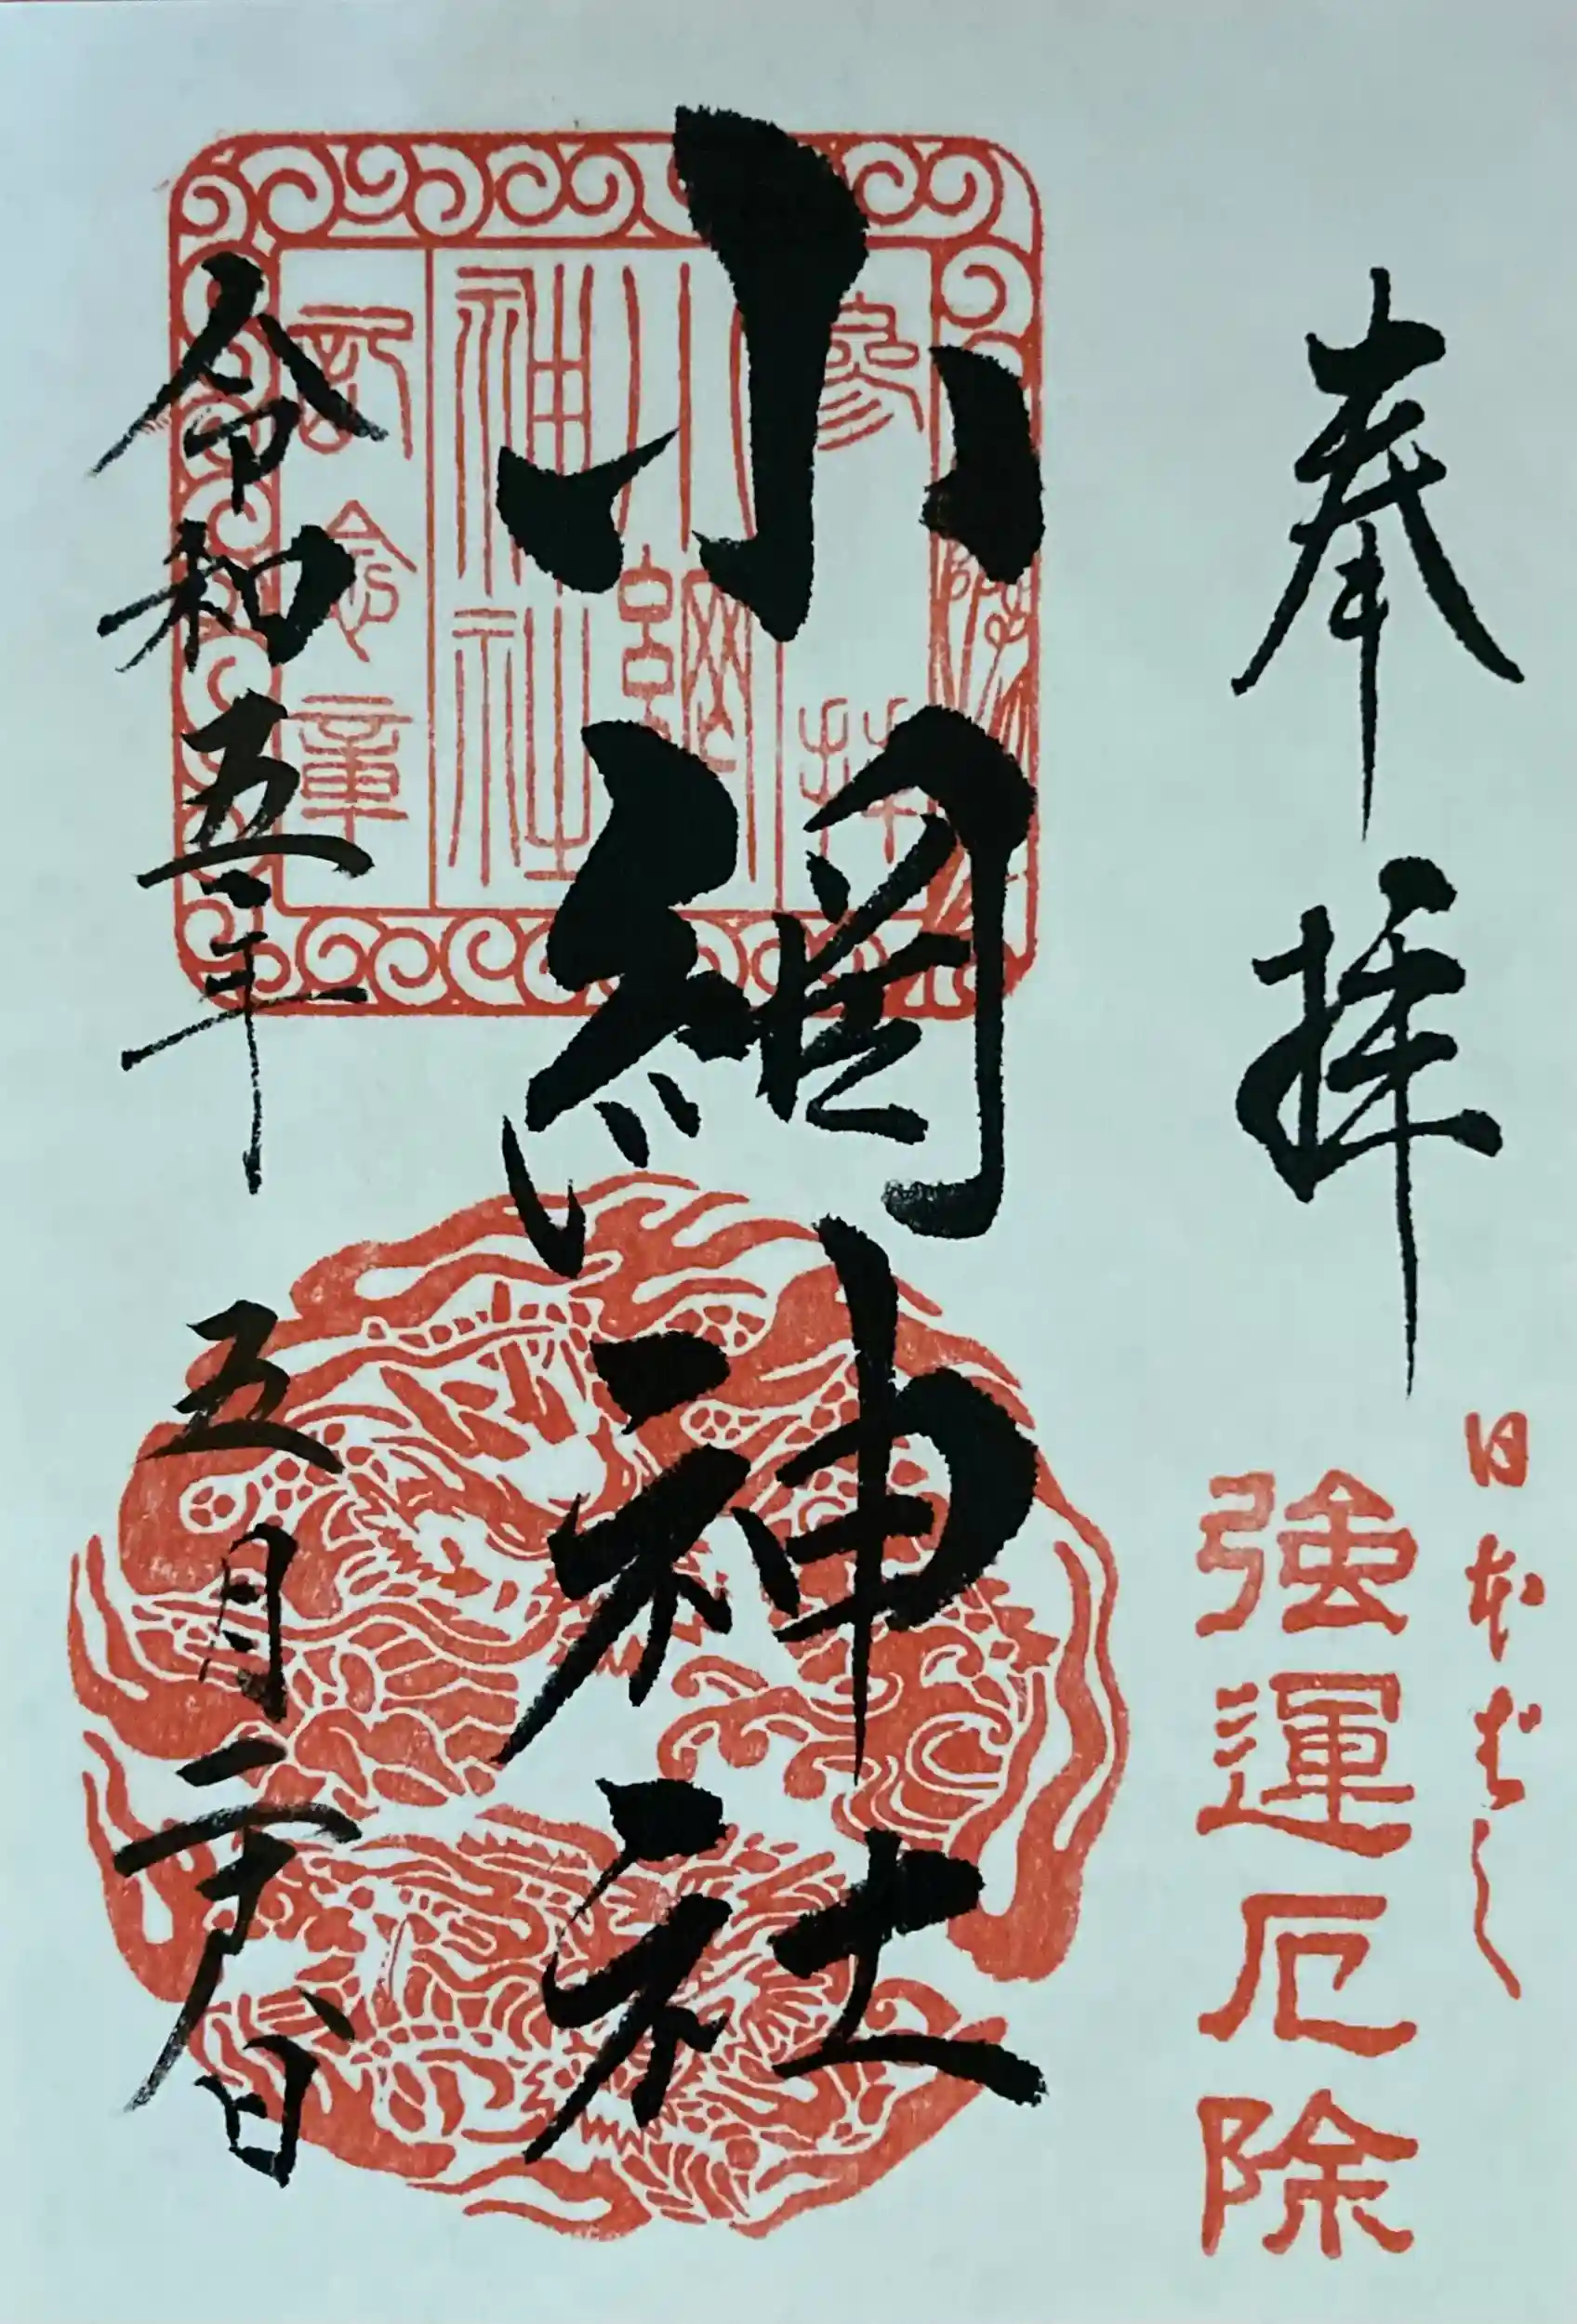 奉拝
日本ばし
強運厄除
小網神社
令和五年五月二十八日
参拝
小網
神社
記念章